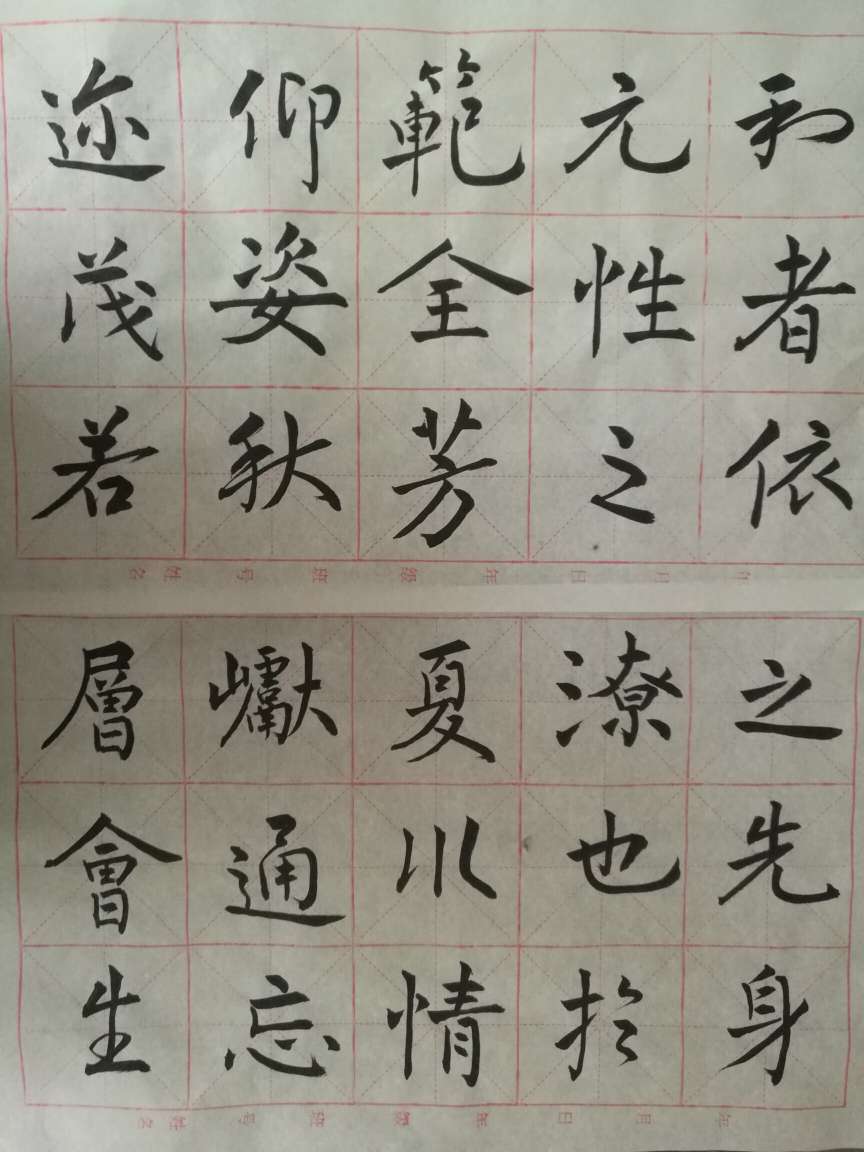 和者依
元性之
範全芳
仰姿秋
迩茂若
年 月 日 年 级 班 号 姓名
之先身
潦也扵
夏川情
巘通忘
層會生
年 月 日 年 级 班 号 姓名